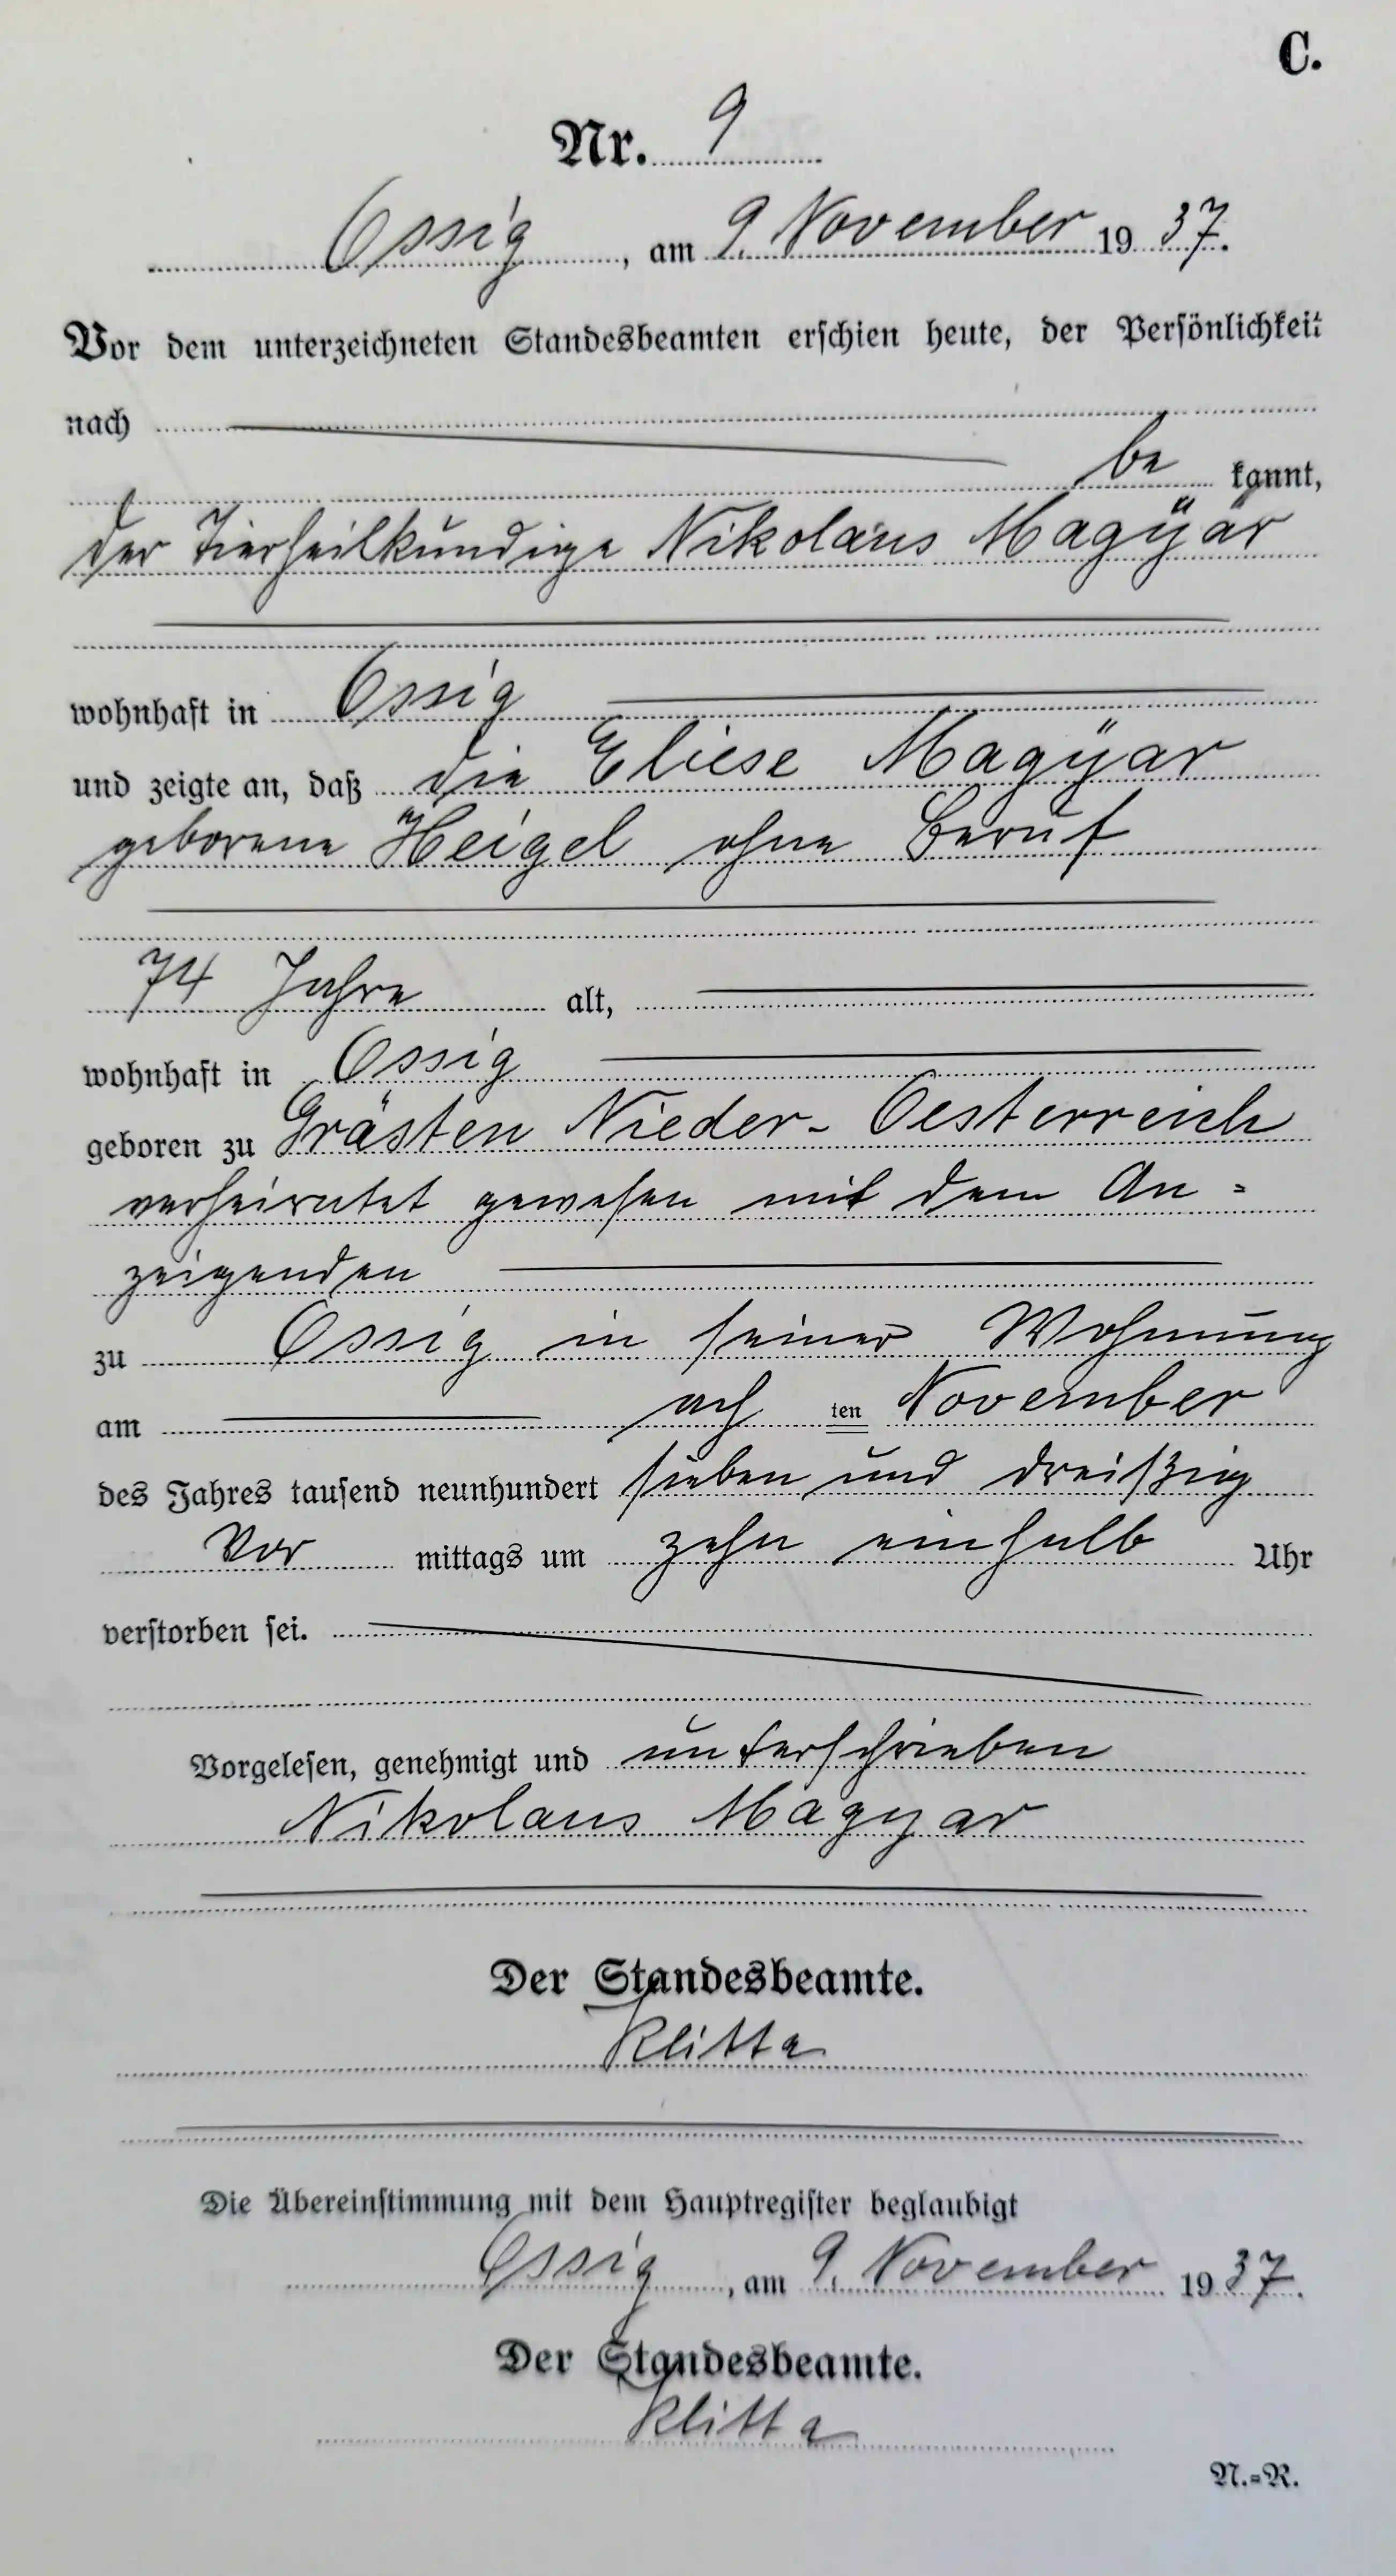 C.
Nr. 9
Ossig, am 9. November 1937.
Vor dem unterzeichneten Standesbeamten erschien heute, der Persönlichkeit
nach
be kannt,
der Tierheilkundige Nikolaus Magÿar
wohnhaft in Ossig
und zeigte an, daß die Eliese Magÿar
geborene Heigel ohne Beruf
74 Jahre alt,
wohnhaft in Ossig
geboren zu Grästen Nieder-Oesterreich
verheiratet gewesen mit dem An=
zeigenden
zu Ossig in seiner Wohnung
am ach ten November
des Jahres tausend neunhundert sieben und dreißig
Vor mittags um zehn einhalb Uhr
verstorben sei.
Vorgelesen, genehmigt und unterschrieben
Nikolaus Magyar
Der Standesbeamte.
Klitta
Die Übereinstimmung mit dem Hauptregister beglaubigt
Ossig, am 9. November 1937.
Der Standesbeamte.
Klitta
N.=R.